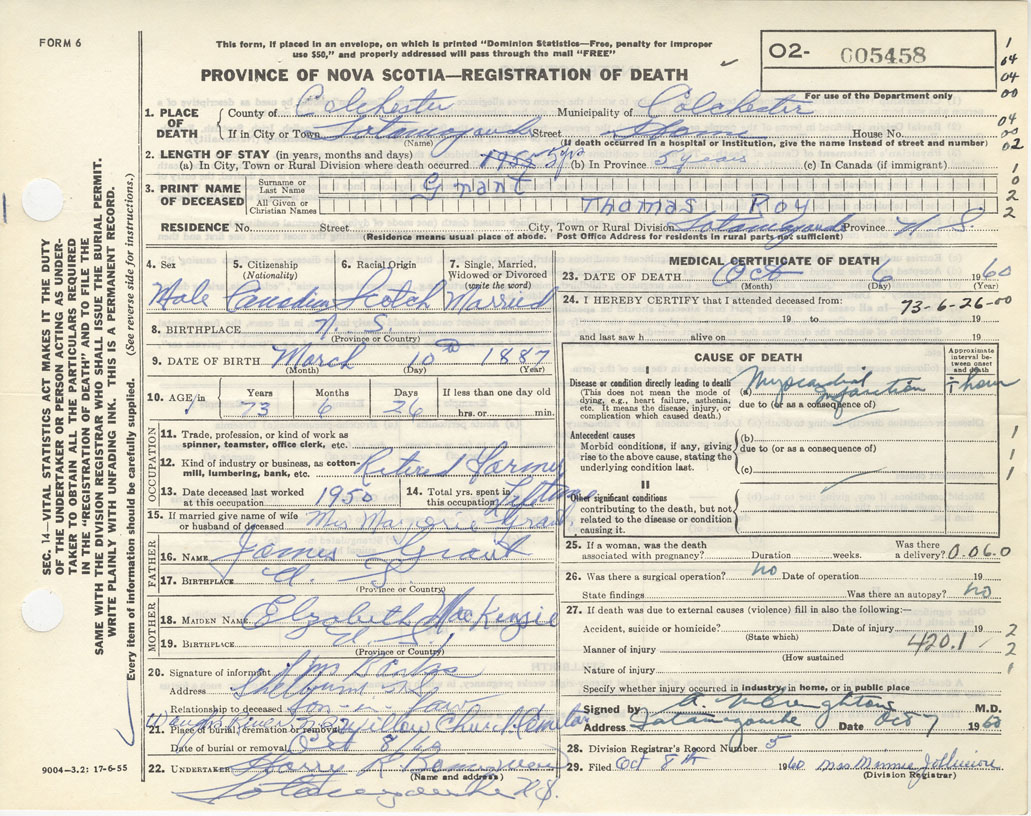 FORM 6
This form, if placed in an envelope, on which is printed "Dominion Statistics—Free, penalty for improper
use $50," and properly addressed will pass through the mail "FREE"
O2- 005458
For use of the Department only
PROVINCE OF NOVA SCOTIA—REGISTRATION OF DEATH
1. PLACE OF DEATH
County of Colchester Municipality of Colchester
If in City or Town Tatamagouche Street Home House No.
(Name) (If death occurred in a hospital or institution, give the name instead of street and number)
2. LENGTH OF STAY (in years, months and days)
(a) In City, Town or Rural Division where death occurred 1955 5 yrs (b) In Province 5 years (c) In Canada (if immigrant)
3. PRINT NAME OF DECEASED
Surname or Last Name Grant
All Given or Christian Names Thomas Roy
RESIDENCE No. Street City, Town or Rural Division Tatamagouche Province N. S.
(Residence means usual place of abode. Post Office Address for residents in rural parts not sufficient)
SEC. 14—VITAL STATISTICS ACT MAKES IT THE DUTY
OF THE UNDERTAKER OR PERSON ACTING AS UNDER-
TAKER TO OBTAIN ALL THE PARTICULARS REQUIRED
IN THE "REGISTRATION OF DEATH" AND TO FILE THE
SAME WITH THE DIVISION REGISTRAR WHO SHALL ISSUE THE BURIAL PERMIT.
WRITE PLAINLY WITH UNFADING INK. THIS IS A PERMANENT RECORD.
Every item of information should be carefully supplied. (See reverse side for instructions.)
4. Sex Male
5. Citizenship (Nationality) Canadian
6. Racial Origin Scotch
7. Single, Married, Widowed or Divorced (write the word) Married
8. BIRTHPLACE N. S.
(Province or Country)
9. DATE OF BIRTH March 10th 1887
(Month) (Day) (Year)
10. AGE Years Months Days If less than one day old
73 6 26 hrs. or min.
OCCUPATION
11. Trade, profession, or kind of work as
spinner, teamster, office clerk, etc.
12. Kind of industry or business, as cotton-
mill, lumbering, bank, etc. Retired Farmer
13. Date deceased last worked at this occupation 1950
14. Total yrs. spent in this occupation Lifetime
15. If married give name of wife
or husband of deceased Mrs Marjorie Grant
FATHER
16. NAME James Grant
17. BIRTHPLACE N. S.
(Province or Country)
MOTHER
18. MAIDEN NAME Elzabeth MacKenzie
19. BIRTHPLACE N. S.
(Province or Country)
20. Signature of informant
Address
Relationship to deceased Son-in-law
21. Place of burial, cremation or removal Willow Church
Date of burial or removal Oct 8/60
22. UNDERTAKER Harry R
(Name and address)
Tatamagouche N.S.
9004—3.2: 17-6-55
MEDICAL CERTIFICATE OF DEATH
23. DATE OF DEATH Oct 6 1960
(Month) (Day) (Year)
24. I HEREBY CERTIFY that I attended deceased from: 73-6-26-00
19 to 19
and last saw h alive on 19
CAUSE OF DEATH
Approximate interval between onset and death
I
Disease or condition directly leading to death
(This does not mean the mode of dying, e.g., heart failure, asthenia, etc. It means the disease, injury, or complication which caused death.)
(a) Myocardial infarction
due to (or as a consequence of)
Antecedent causes
Morbid conditions, if any, giving rise to the above cause, stating the underlying condition last.
(b)
due to (or as a consequence of)
(c)
II
Other significant conditions
contributing to the death, but not related to the disease or condition causing it.
25. If a woman, was the death associated with pregnancy? Duration weeks. Was there a delivery? 0.06.0
26. Was there a surgical operation? no Date of operation 19
State findings Was there an autopsy? no
27. If death was due to external causes (violence) fill in also the following:—
Accident, suicide or homicide? Date of injury 19
(State which)
Manner of injury 420.1
(How sustained)
Nature of injury
Specify whether injury occurred in industry, in home, or in public place
Signed by M.D.
Address Tatamagouche Date Oct 7 1960
28. Division Registrar's Record Number 5
29. Filed Oct 8th 1960 Mrs Minnie
(Division Registrar)